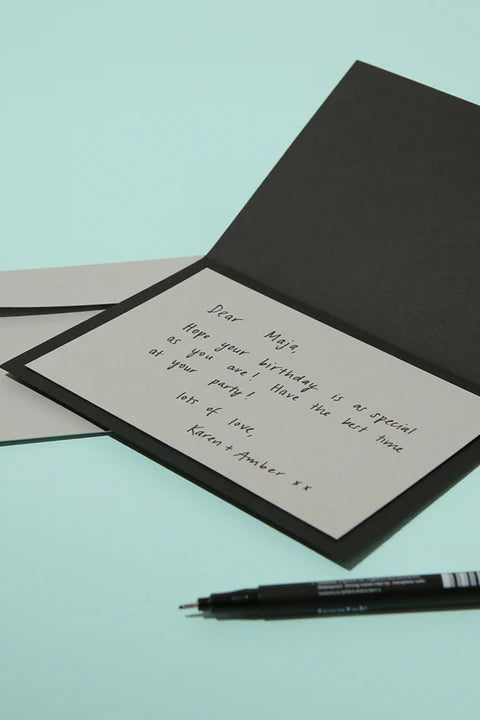 Dear Maja,
Hope your birthday is as special
as you are! Have the best time
at your party!
lots of love,
Karen + Amber x x